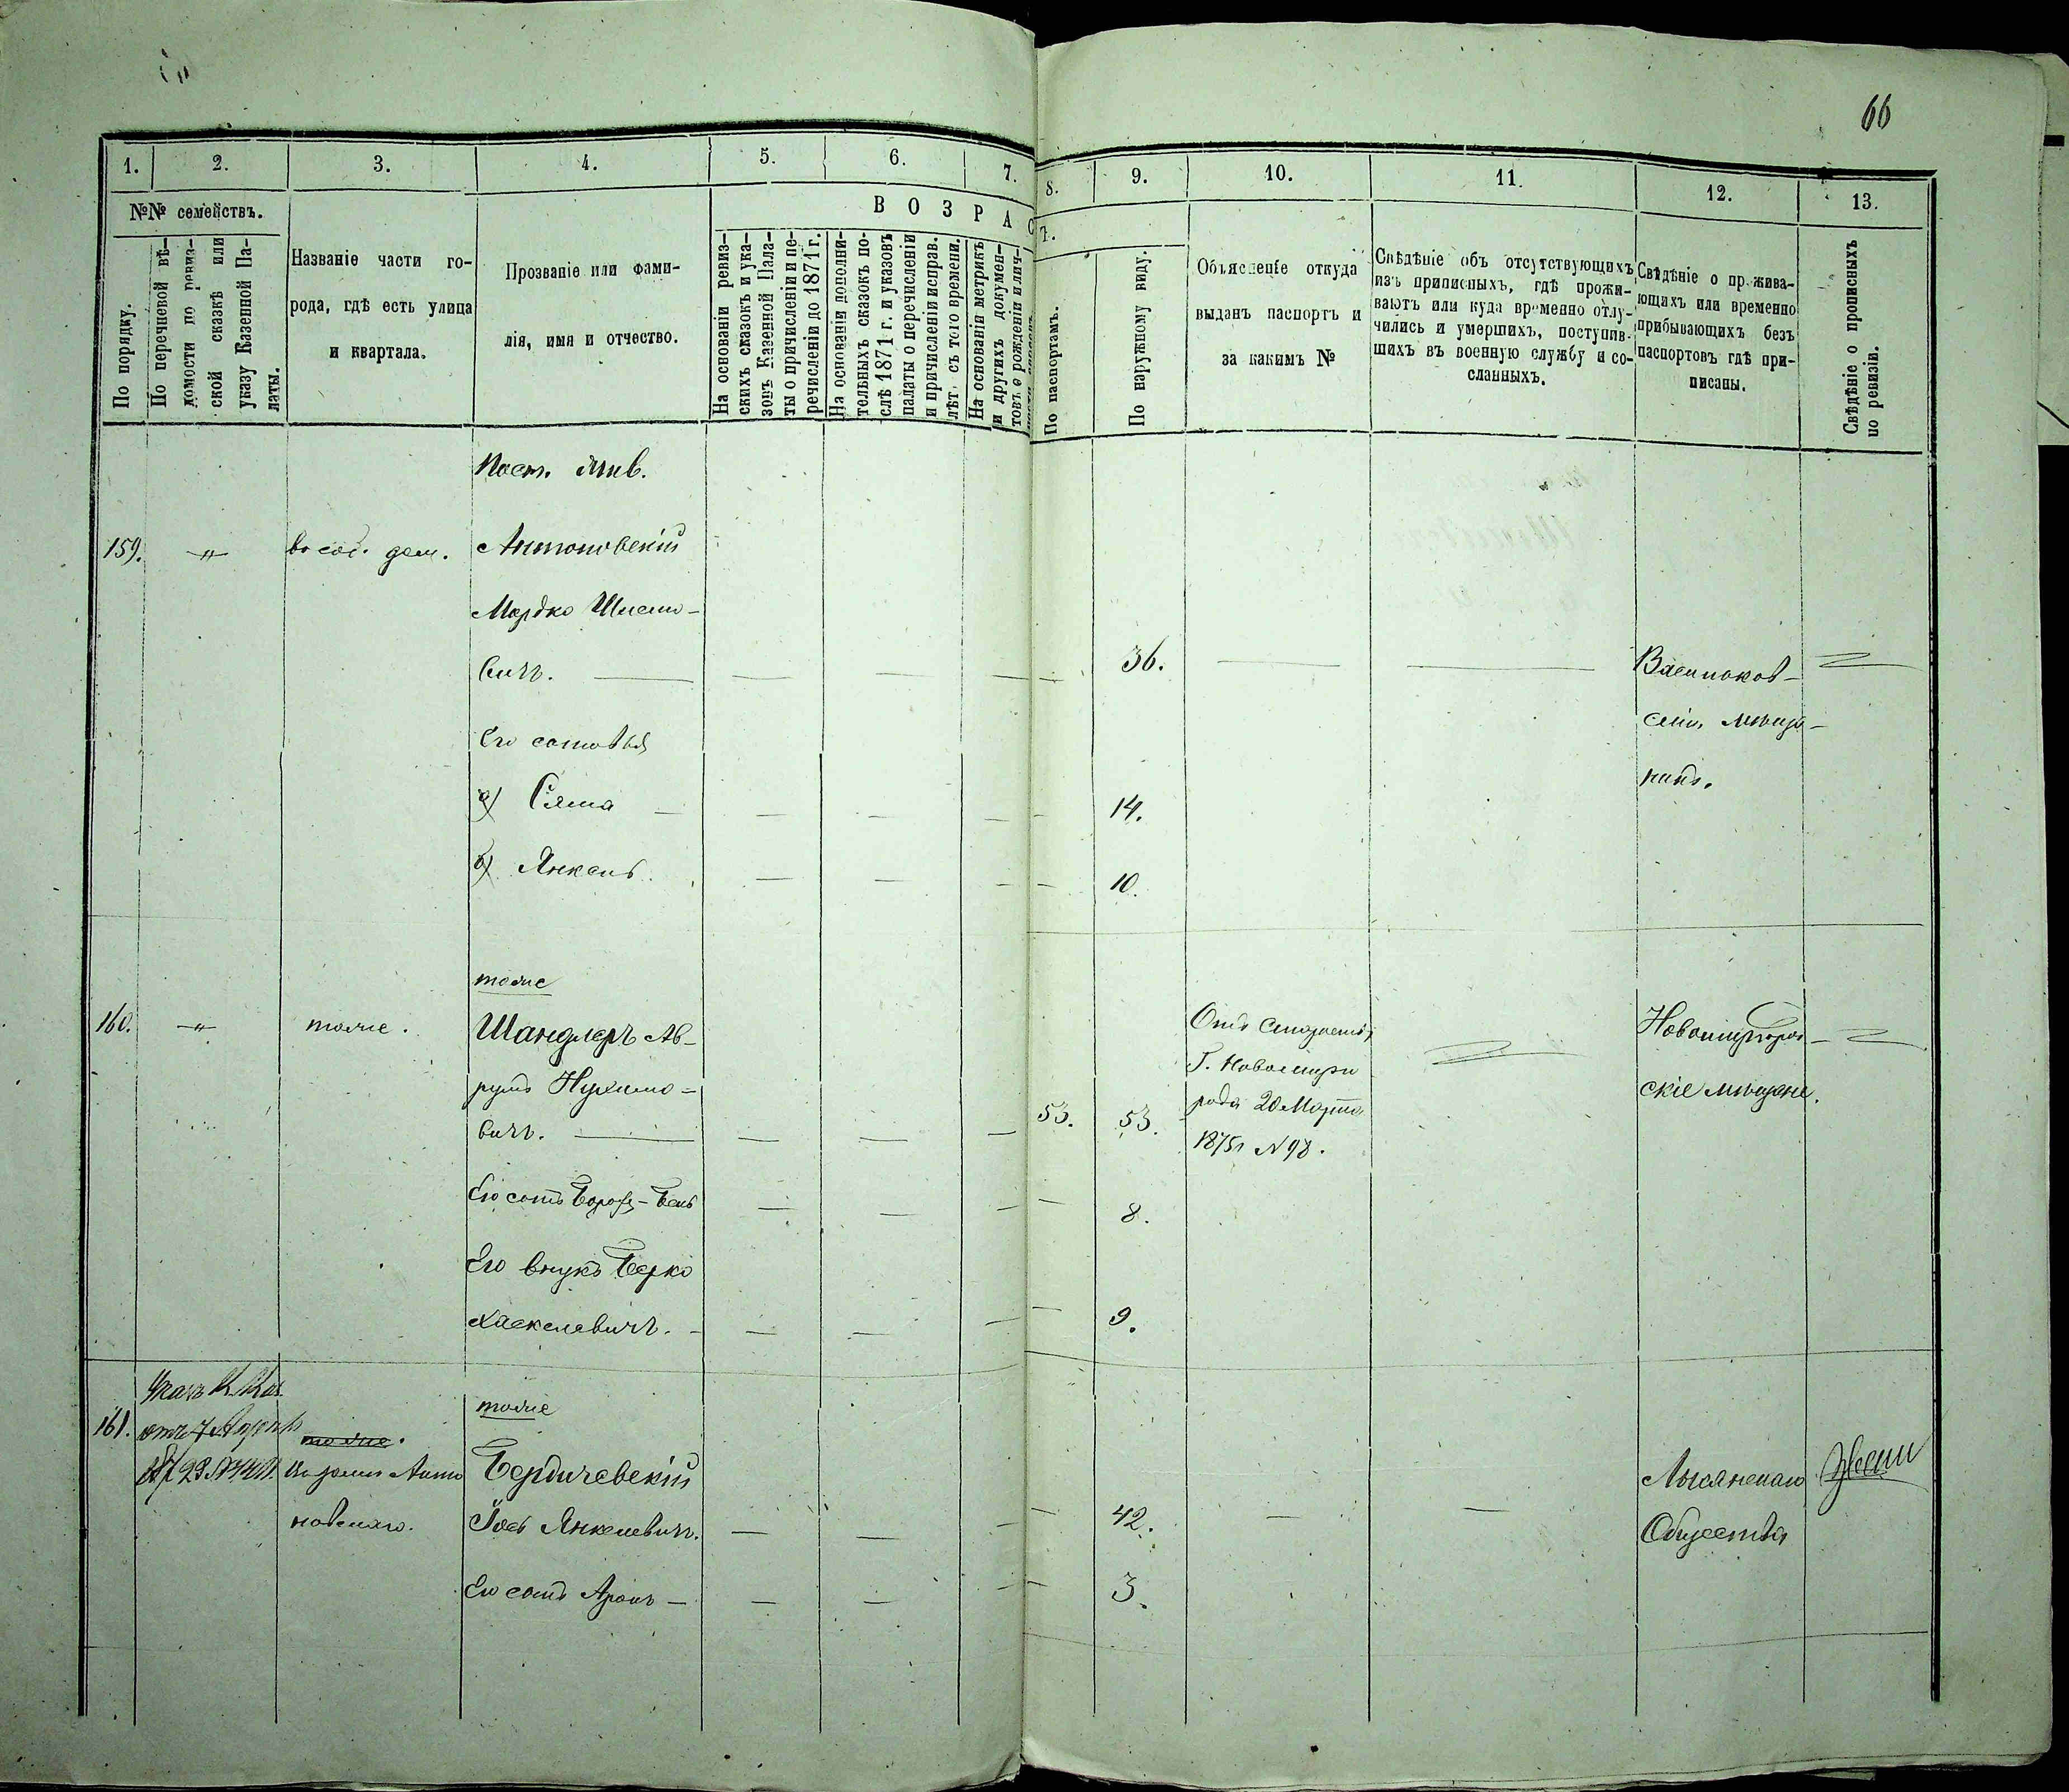 66
1. 2. 3. 4. 5. 6. 7. 8. 9. 10. 11. 12. 13.
№№ семействъ.
По порядку.
По перечневой вѣ-
домости по ревиз-
ской сказкѣ или
указу Казенной Па-
латы.
Названіе части го-
рода, гдѣ есть улица
и квартала.
Прозваніе или фами-
лія, имя и отчество.
ВОЗРАСТЪ.
На основаніи ревиз-
скихъ сказокъ и ука-
зовъ Казенной Пала-
ты о причисленіи и пе-
речисленіи до 1871 г.
На основаніи дополни-
тельныхъ сказокъ по-
слѣ 1871 г. и указовъ
палаты о перечисленіи
и причисленіи исправ.
лѣтъ съ того времени.
На основаніи метрикъ
и другихъ докумен-
товъ о рожденіи и лич-
По паспортамъ.
По наружному виду.
Объясненіе откуда
выданъ паспортъ и
за какимъ №
Свѣдѣніе объ отсутствующихъ
изъ приписныхъ, гдѣ прожи-
ваютъ или куда временно отлу-
чились и умершихъ, поступив-
шихъ въ военную службу и со-
сланныхъ.
Свѣдѣніе о прожива-
ющихъ или временно
прибывающихъ безъ
паспортовъ гдѣ при-
писаны.
Свѣдѣніе о прописныхъ
по ревизіи.
Пост. жив.
159. — " — въ соб. дом. Антоновскій
Мордко Шлемо-
вичъ. — — — — — 36. — — Васильков-
скій мѣща-
нинъ.
Его сыновья
а) Сяма — — — — — 14.
б) Янкель — — — — 10.
тоже
160. — " — тоже. Шандлеръ Ав-
румъ Нухимо-
вичъ. — — — — 53. 53.
Отъ Старосты
Г. Новомирго
рода 20 Марта
1875 г №98.
Новомиргород-
скіе мѣщане.
Его сынъ Борох-Бенъ — — — — 8.
Его внукъ Берко
Хаскелевичъ. — — — — — 9.
тоже
161. Указъ К. Пал.
отъ 7 Апрѣл
тоже.
въ домѣ Анто
новскаго.
Бердичевскій
Іось Янкелевичъ. — — — — 42. — —
Лысянскаго
Общества
Его сынъ Аронъ — — — — — 3.